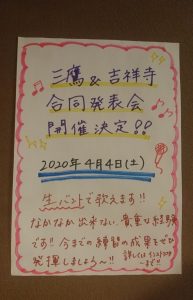 三鷹&吉祥寺
合同発表会
開催決定!!
2020年4月4日(土)
生バンドで歌えます!!
なかなか出来ない貴重な経験
です!!今までの練習の成果をぜひ
発揮しましょう〜!!
詳しくはインストラクター
まで!!